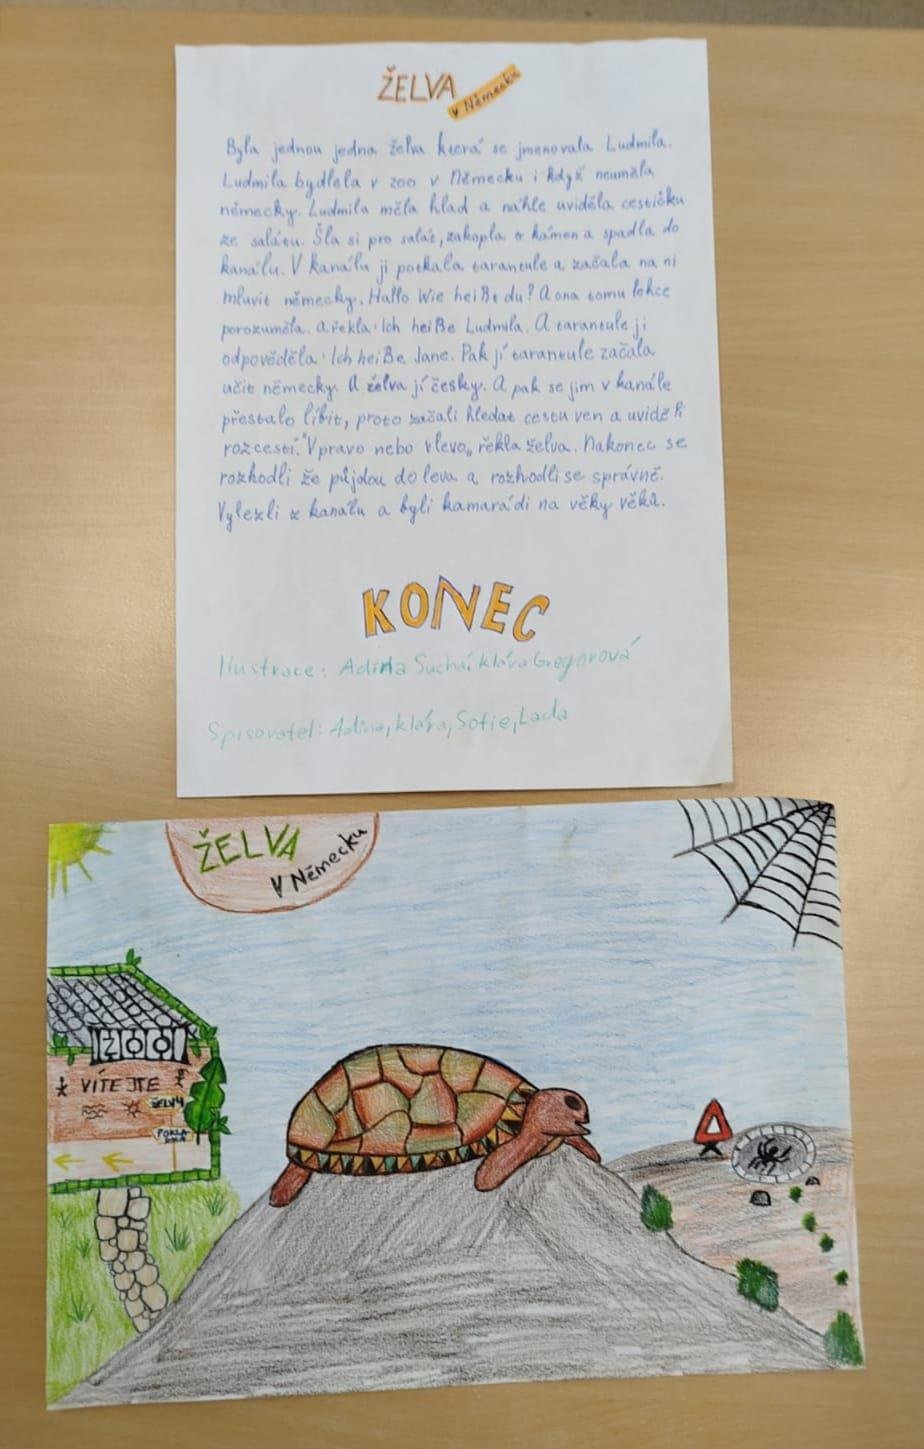 ŽELVA
v Německu
Byla jednou jedna želva která se jmenovala Ludmila.
Ludmila bydlela v zoo v Německu i když neuměla
německy. Ludmila měla hlad a náhle uviděla cestičku
ze salátu. Šla si pro salát, zakopla o kámen a spadla do
kanálu. V kanálu ji potkala tarantule a začala na ni
mluvit německy. Hallo Wie heißt du? A ona tomu lehce
porozuměla. A řekla: Ich heiße Ludmila. A tarantule ji
odpověděla: Ich heiße Jane. Pak jí tarantule začala
učit německy. A želva jí česky. A pak se jim v kanále
přestalo líbit, proto začali hledat cestu ven a uviděli
rozcestí. "Vpravo nebo vlevo„ řekla želva. Nakonec se
rozhodli že půjdou do leva a rozhodli se správně.
Vylezli z kanálu a byli kamarádi na věky věků.
KONEC
Ilustrace: Adina Suchá, klára Gregorová
Spisovatel: Adina, klára, Sofie, Lada
ŽELVA
V Německu
ZOO
VÍTEJTE
ŽELVY
POKLA-
DNA